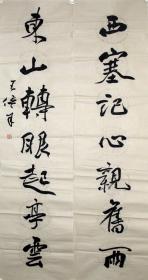 西塞記心親舊雨
東山轉眼起亭雲